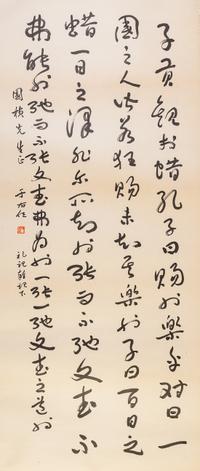 子貢觀於蜡孔子曰賜也樂乎對曰一
國之人皆若狂賜未知其樂也子曰百日之
蜡一日之澤非爾所知也張而不弛文武不
弗能也弛而不張文武弗為也一張一弛文武之道也
國楨先生正
于右任
禮記雜記下